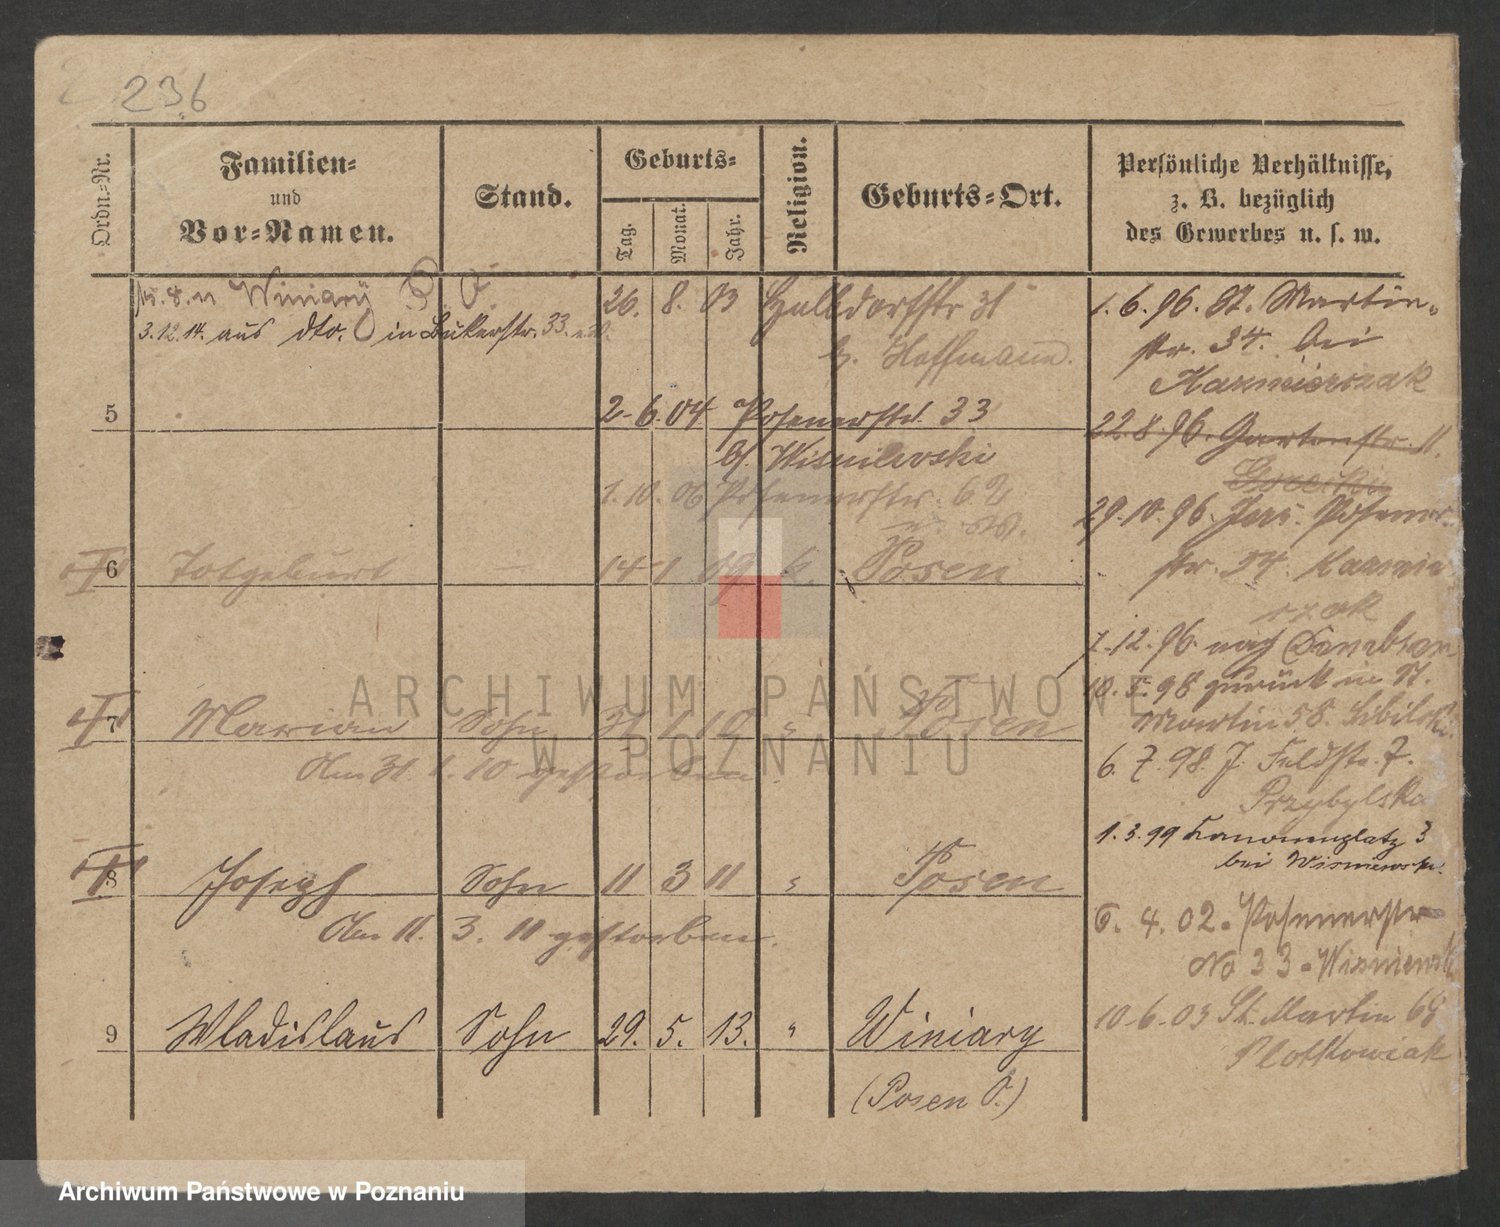 236
Ordn.-Nr.
Familien-
und
Vor-Namen.
Stand.
Geburts-
Tag.
Monat.
Jahr.
Religion.
Geburts-Ort.
Persönliche Verhältnisse,
z. B. bezüglich
des Gewerbes u. s. w.
Winiary
3.12.14. aus dto. in Bukerstr. 33.
26. 8. 03 Halldorfstr 31
b. Hoffmann.
5
2. 6. 04 Posenerstr. 33
b/ Wisniewski
1. 10. 06 Posenerstr. 62
6 Totgeburt 14 1 09 k. Posen
7 Marian Sohn 31 1 10 " Posen
Am 31 1. 10 gestorben.
8 Joseph Sohn 11 3 11 " Posen
Am 11. 3. 11 gestorben.
9 Wladislaus Sohn 29. 5. 13. " Winiary
(Posen O.)
1. 6. 96. St. Martin-
str. 34. bei
Kazmierczak
22. 8. 96. Gartenstr. 11.
29. 10. 96. Jers. Posener-
str. 54. Kazmier
czak
7. 12. 96. nach
10. 5. 98 zurück in St.
Martin 58. Sibilski
6. 7. 98. J. Feldstr. 7.
Przybylska
1. 3. 99 Kanonenplatz 3
bei Wisniewski.
6. 4. 02. Posenerstr
No 33 - Wisniewski
10. 6. 03 St. Martin 68
Plotkowiak
ARCHIWUM PAŃSTWOWE
W POZNANIU
Archiwum Państwowe w Poznaniu